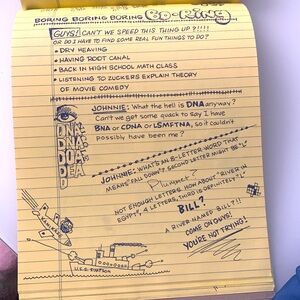 BORING BORING BORING BO-RING
GUYS! CAN'T WE SPEED THIS THING UP?!!!!
OR DO I HAVE TO FIND SOME REAL FUN THINGS TO DO?
• DRY HEAVING
• HAVING ROOT CANAL
• BACK IN HIGH SCHOOL MATH CLASS
• LISTENING TO ZUCKERS EXPLAIN THEORY
OF MOVIE COMEDY
JOHNNIE: What the hell is DNA anyway?
Can't we get some quack to say I have
BNA or CDNA or LSMFTNA, so it couldn't
possibly have been me?
DNA
DNA
DOA
DEA
D
JOHNNIE: WHAT'S AN 8-LETTER-WORD THAT
MEANS "FALL DOWN"? SECOND LETTER MIGHT BE "L"
Plummet
NOT ENOUGH LETTERS. HOW ABOUT "RIVER IN
EGYPT", 4 LETTERS, THIRD IS DEFINITELY "L"
BILL?
A RIVER NAMED BILL?!!
COME ON GUYS!
YOU'RE NOT TRYING!
U.S.S. SIMPSON